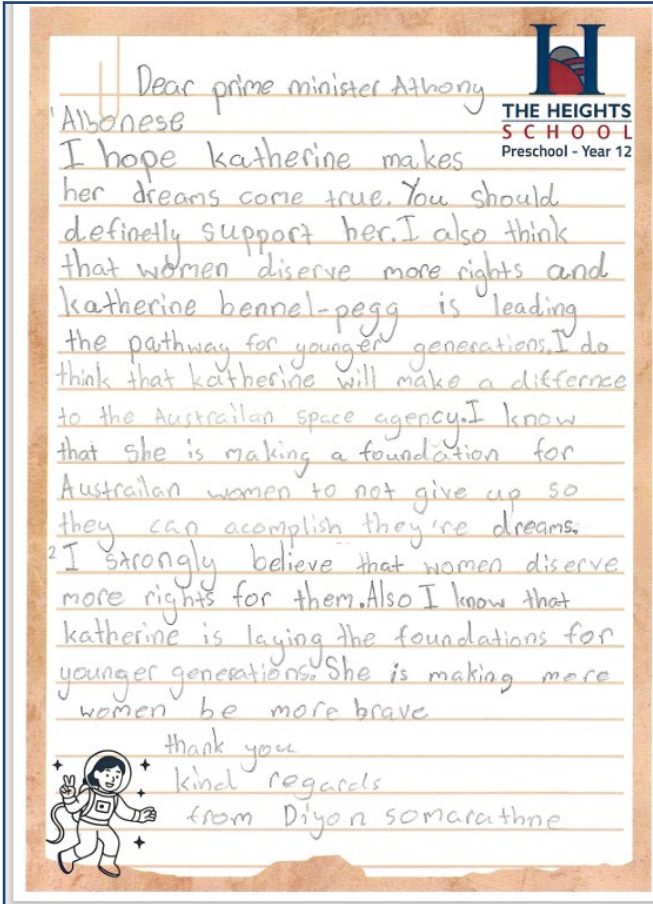 Dear prime minister Athony
THE HEIGHTS
SCHOOL
Preschool - Year 12
'Albonese
I hope katherine makes
her dreams come true. You should
definetly support her. I also think
that women diserve more rights and
katherine bennel-pegg is leading
the pathway for younger generations. I do
think that katherine will make a differnce
to the Austrailan space agency. I know
that she is making a foundation for
Austrailan women to not give up so
they can acomplish they're dreams.
2 I strongly believe that women diserve
more rights for them. Also I know that
katherine is laying the foundations for
younger generations. She is making more
women be more brave
thank you
kind regards
from Diyon somarathne